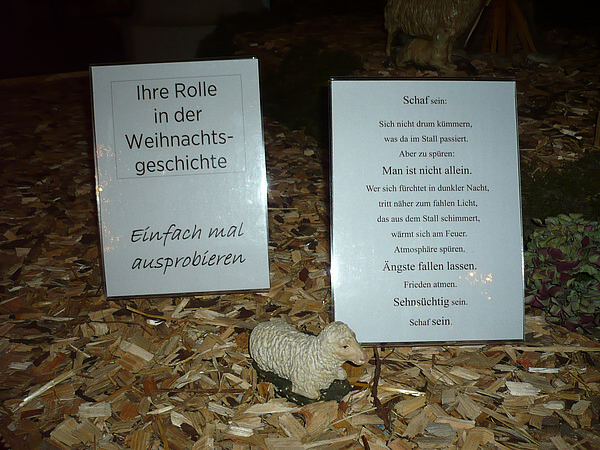 Ihre Rolle
in der
Weihnachts-
geschichte
Einfach mal
ausprobieren
Schaf sein:
Sich nicht drum kümmern,
was da im Stall passiert.
Aber zu spüren:
Man ist nicht allein.
Wer sich fürchtet in dunkler Nacht,
tritt näher zum fahlen Licht,
das aus dem Stall schimmert,
wärmt sich am Feuer.
Atmosphäre spüren,
Ängste fallen lassen.
Frieden atmen.
Sehnsüchtig sein.
Schaf sein.